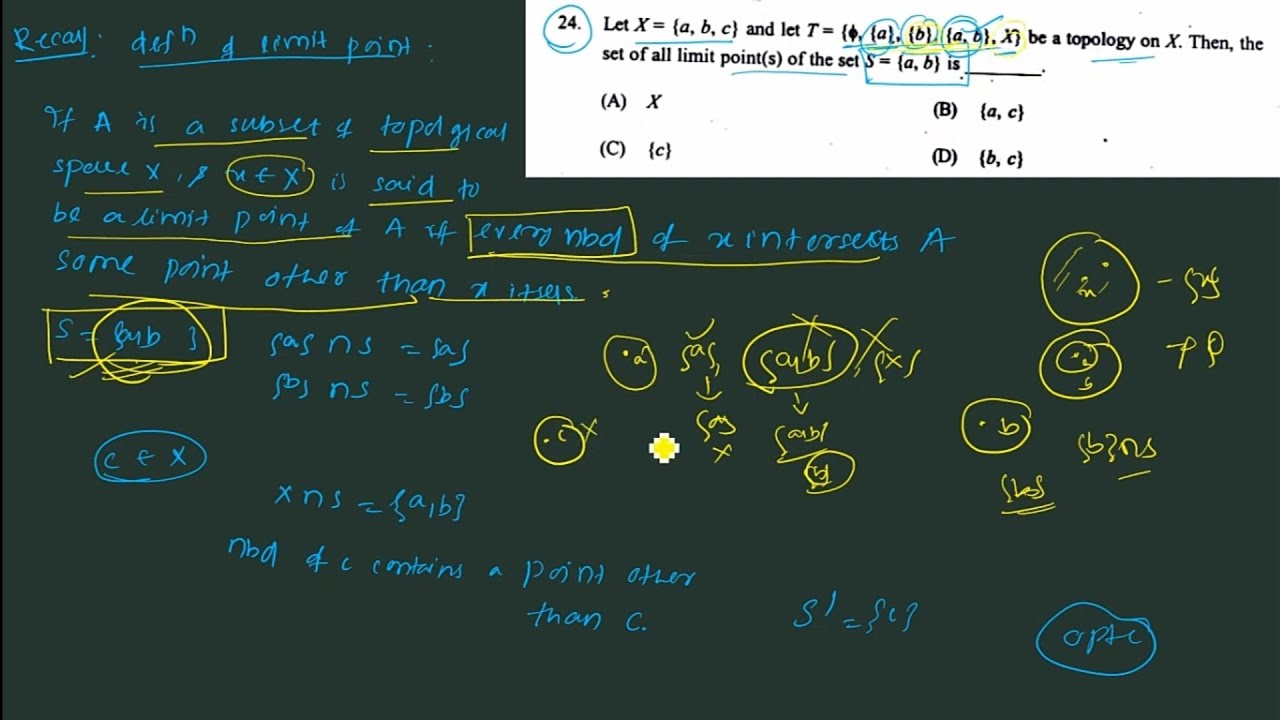 24. Let X = {a, b, c} and let T = {ϕ, {a}, {b}, {a, b}, X} be a topology on X. Then, the
set of all limit point(s) of the set S = {a, b} is ________.
(A) X
(B) {a, c}
(C) {c}
(D) {b, c}
Recall: defn of limit point:
If A is a subset of topological
space X, x ∈ X is said to
be a limit point of A if every nbd of x intersects A
some point other than x itself.
S = {a,b}
{a} ∩ S = {a}
{b} ∩ S = {b}
.a {a} {a,b} {x}
{a} {a,b}
x {b}
.c x
.b {b} ∩ S
{b}
c ∈ X
X ∩ S = {a,b}
nbd of c contains a point other
than c.
S' = {c}
opt c